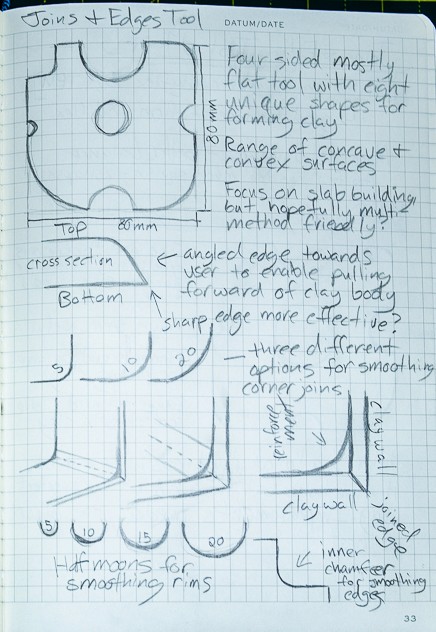 Joins + Edges Tool
DATUM/DATE
Four sided mostly
flat tool with eight
unique shapes for
forming clay
Range of concave +
convex surfaces
Focus on slab building,
but hopefully multi-
method friendly?
80mm
80mm
Top
cross section
Bottom
angled edge towards
user to enable pulling
forward of clay body
sharp edge more effective?
5
10
20
three different
options for smoothing
corner joins
reinforce
ment
clay wall
clay wall
joined
edge
5
10
15
20
Half moons for
smoothing rims
inner
chamfer
for smoothing
edges
33